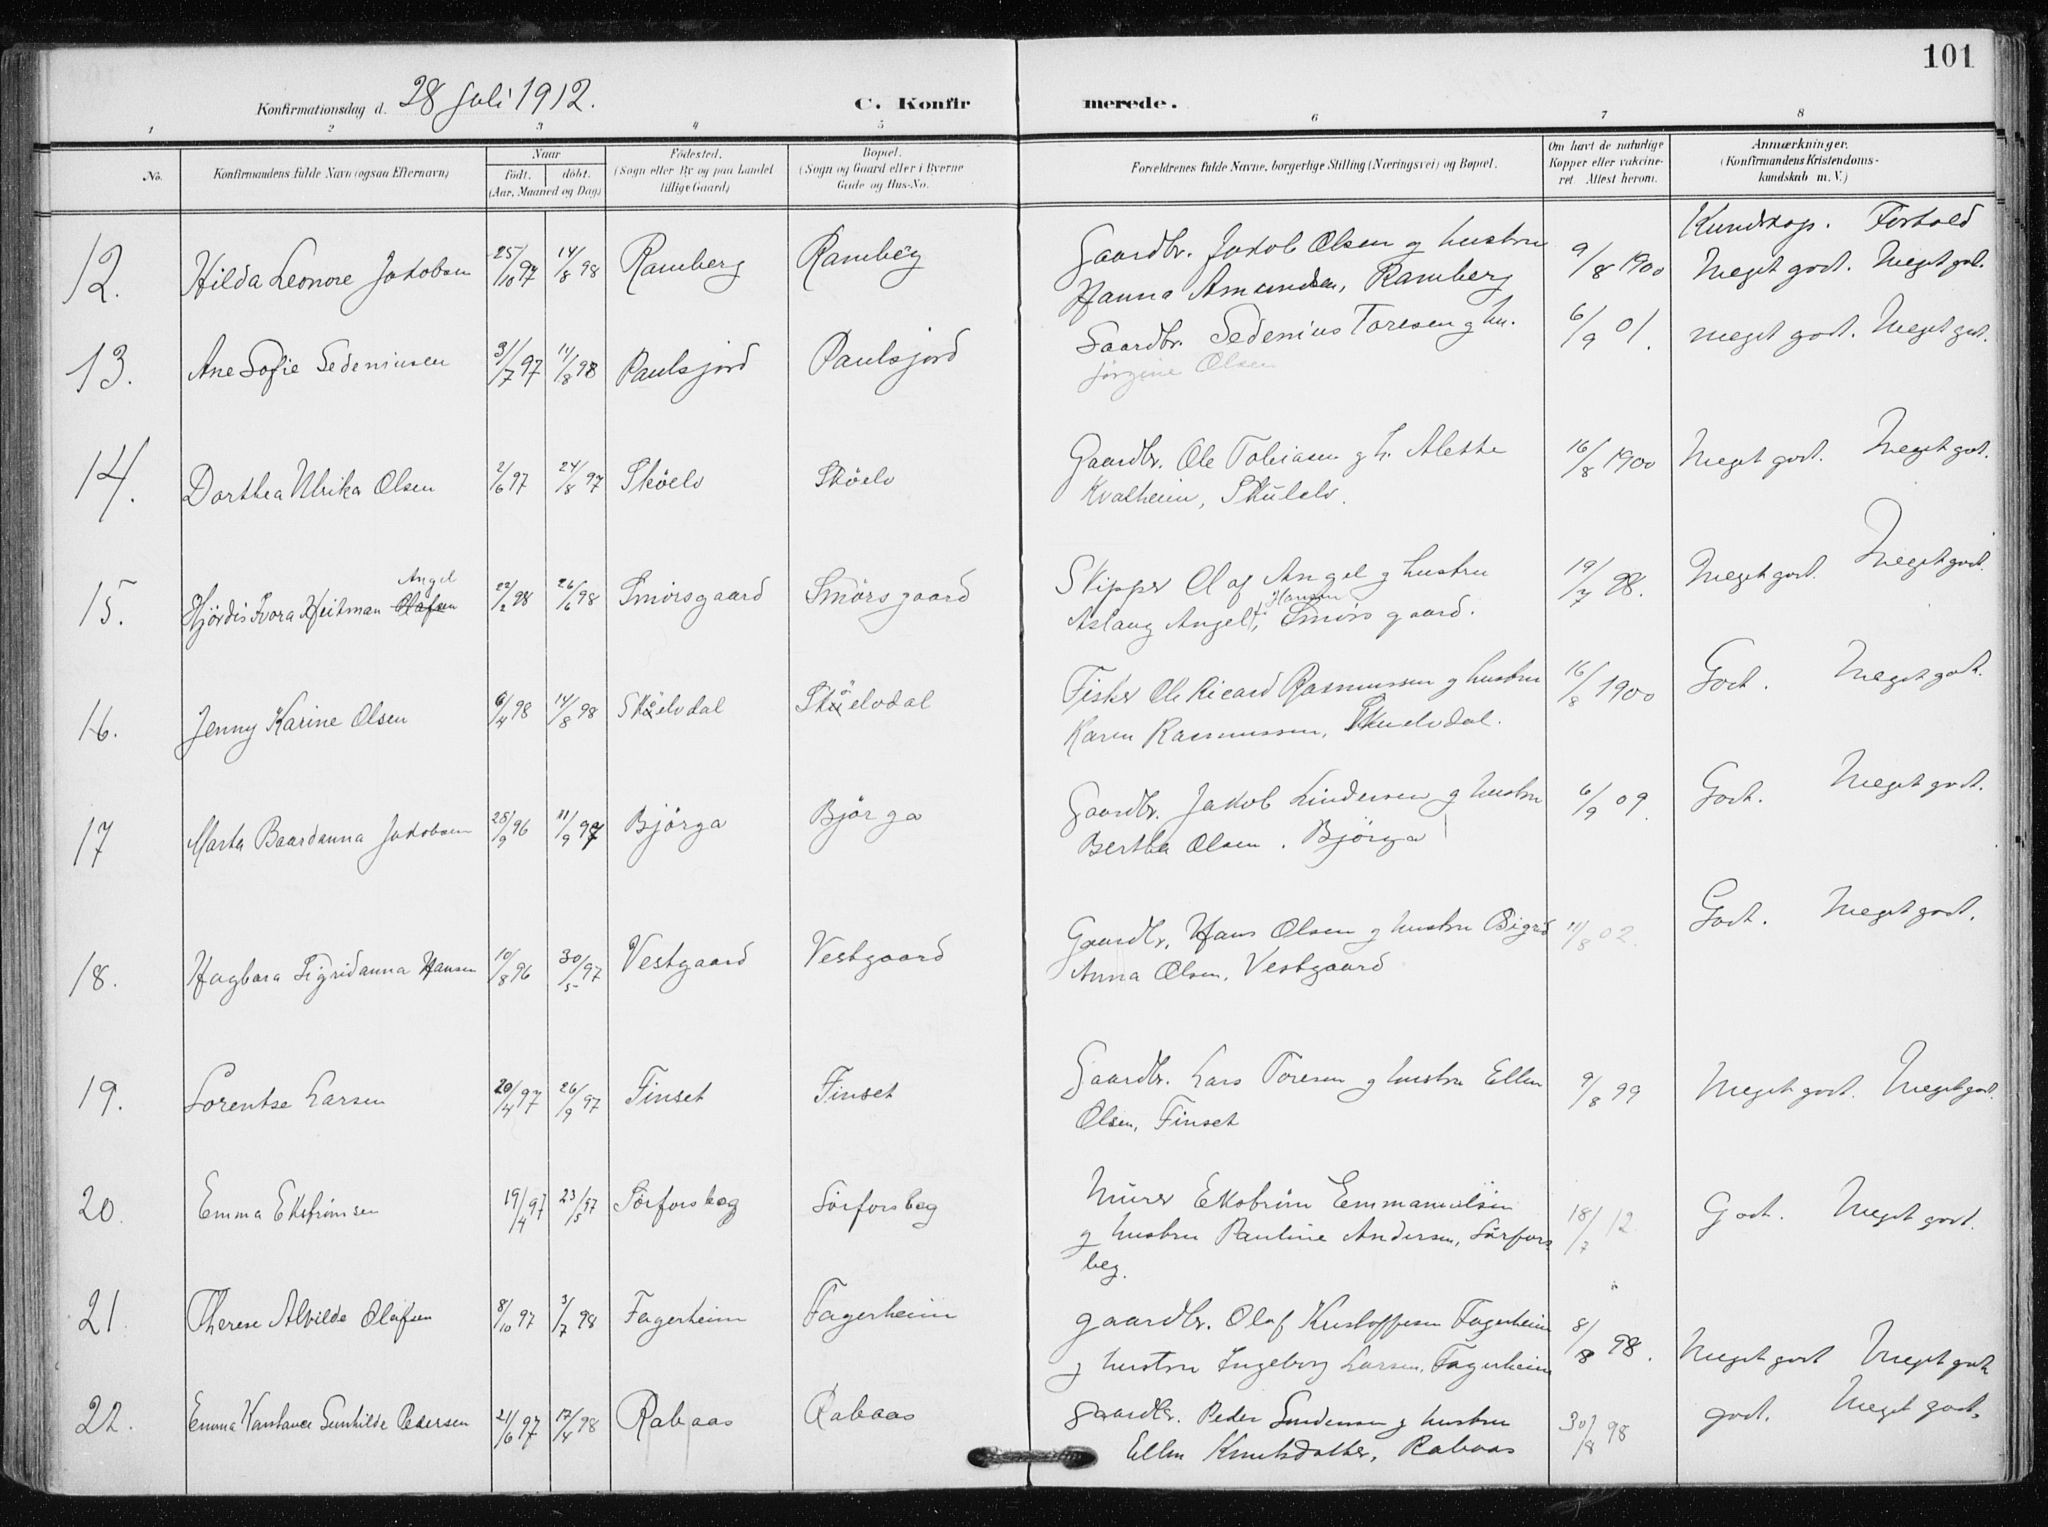 101
Konfirmationsdag d. 28 Juli 1912. C. Konfirmerede.
1 2 3 4 5 6 7 8
No. Konfirmandens fulde Navn (ogsaa Efternavn) Naar født. døbt. (Aar, Maaned og Dag) Fødested. (Sogn eller By og paa Landet tillige Gaard) Bopæl. (Sogn og Gaard eller i Byerne Gade og Hus-No. Forældrenes fulde Navne, borgerlige Stilling (Næringsvei) og Bopæl. Om havt de naturlige Kopper eller vakcineret. Attest herom. Anmærkninger. (Konfirmandens Kristendomskundskab m. V.)
Kundskap. Forhold
12. Hilda Leonore Jakobsen 25/10 97 14/8 98 Ramberg Ramberg Gaardbr. Jakob Olsen og hustru 9/8 1900 Meget godt. Meget godt.
Hanna Amundsen, Ramberg
13. Ane Sofie Sedeniusen 31/7 97 14/8 98 Paulsjord Paulsjord Gaardbr. Sedenius Toresen og hu. 6/9 01. meget godt. Meget godt.
Jørgine Olsen
14. Dorthea Ulrika Olsen 2/6 97 24/8 97 Sköelv Sköelv Gaardbr. Ole Tobiasen og h. Alette 16/8 1900 Meget godt. Meget godt.
Kvalheim, Skulelv.
15. Hjördis Tvora Heitman Olafsen Angel 22/2 98 26/6 98 Smörsgaard Smörsgaard Skipper Olaf Angel og hustru 19/7 98. Meget godt. Meget godt.
Aslaug Angel f. Hansen, Smörsgaard.
16. Jenny Karine Olsen 6/4 98 14/8 98 Sköelvdal Sköelvdal Fisker Ole Ricard Rasmussen og hustru 16/8 1900 Godt. Meget godt.
Karen Rasmussen, Skuelvdal.
17 Marta Baardanna Jakobsen 28/9 96 11/9 97 Björga Björga Gaardbr. Jakob Lindersen og hustru 6/9 09. Godt. Meget godt.
Bertha Olsen. Björga
18. Hagbara Sigridanna Hansen 10/8 96 30/5 97 Vestgaard Vestgaard Gaardbr. Hans Olsen og hustru Sigrid 11/8 02. Godt. Meget godt.
Anna Olsen, Vestgaard
19. Lorentse Larsen 20/4 97 26/9 97 Finset Finset Gaardbr. Lars Toresen og hustru Ellen 9/8 99 Meget godt. Meget godt.
Olsen, Finset
20. Emma Ekstrømsen 19/4 97 23/5 97 Sörforsbeg Sörforsbeg Murer Ekström Emmanuelsen 18/7 12. Godt. Meget godt.
og hustru Pauline Andersen, Sörfors
beg.
21. Therese Alvilde Olafsen 8/10 97 3/7 98 Fagerheim Fagerheim gaardbr. Olaf Kristoffersen Fagerheim 8/8 98. Meget godt Meget godt
og hustru Ingeborg Larsen, Fagerheim
22. Emma Konstance Gunhilde Pedersen 21/6 97 17/4 98 Rabaas Rabaas gaardbr. Peder Lindersen og hustru 30/8 98 godt. Meget godt.
Ellen Knutsdatter, Rabaas